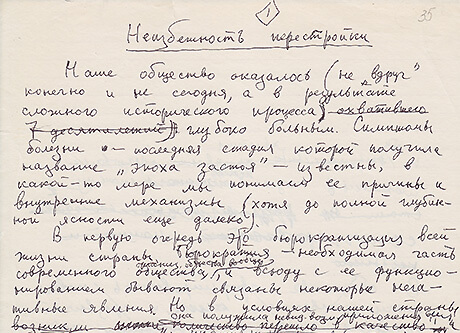 1
35
Неизбежность перестройки
Наше общество оказалось (не „вдруг“
конечно и не сегодня, а в результате
сложного исторического процесса) охватившего
7 десятилетий)) глубоко больным. Симптомы
болезни – последняя стадия которой получила
название „эпоха застоя“ – известны, в
какой-то мере мы понимаем ее причины и
внутренние механизмы (хотя до полной глубин-
ной ясности еще далеко).
В первую очередь это бюрократизация всей
жизни страны. Бюрократия – необходимая часть
современного общества, и всюду с ее функцио-
нированием бывают связаны некоторые нега-
тивные явления. Но в условиях нашей страны
она получила
количество перешло в качество